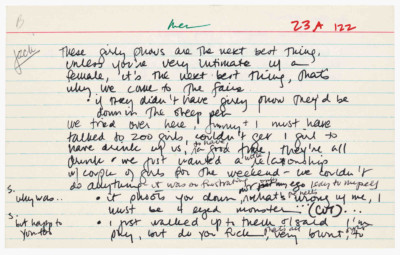 B men 23A 122
Jack
These girly shows are the next best thing,
unless you're very intimate w/ a
female, it's the next best thing, that's
why we come to the fairs
• if they didn't have girly show they'd be
down in the sheep pen
we tried over here, Jimmy + I must have
talked to 200 girls couldn't get 1 girl to
have drink w/ us, to have a good time, they're all
drunk & we just wanted a relationship
w/ couple of girls for the weekend - we couldn't
do anything it was so frustrating
S. why was.. • it shoots you down, what's wrong w/ me, I
must be 4 eyed monster... (CUT)...
S. but happy to • I just walked up to them & said I'm
but do you fuck, very blunt, to